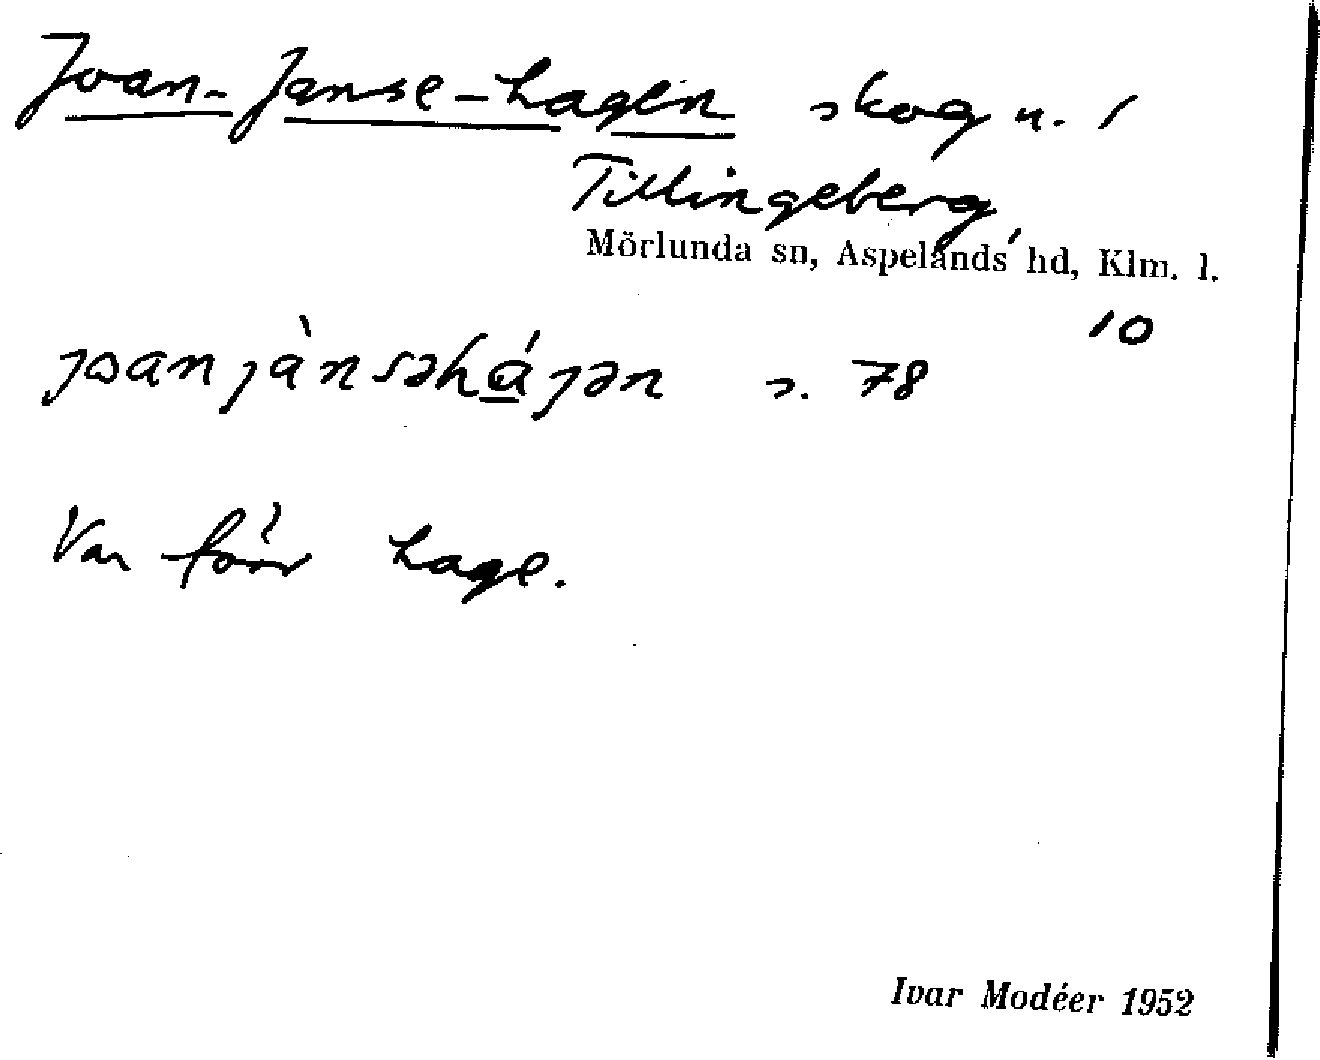 Joan-Janse-hagen skog u. /
Tillingeberg,
Mörlunda sn, Aspelands hd, Klm. l.
10
joanjànsəhájən s. 78
Var förr hage.
Ivar Modéer 1952